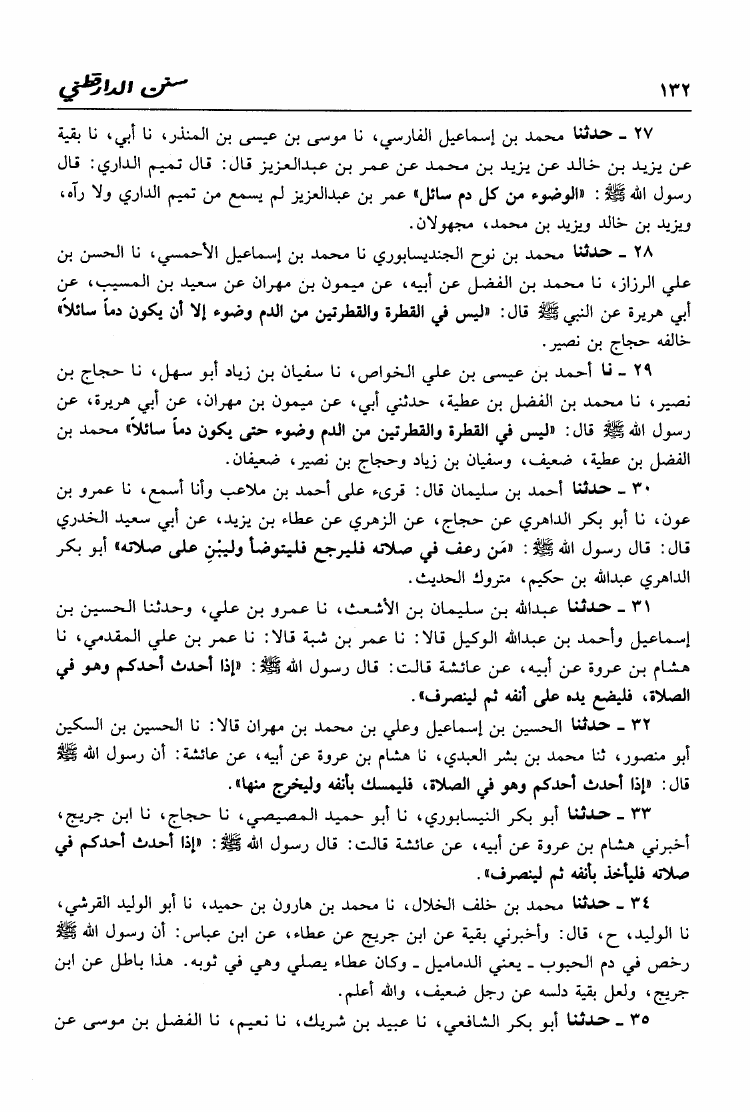 ١٣٢ سنن الدارقطني
٢٧ ـ حدثنا محمد بن إسماعيل الفارسي، نا موسى بن عيسى بن المنذر، نا أبي، نا بقية
عن يزيد بن خالد عن يزيد بن محمد عن عمر بن عبدالعزيز قال: قال تميم الداري: قال
رسول الله ﷺ: «الوضوء من كل دم سائل» عمر بن عبدالعزيز لم يسمع من تميم الداري ولا رآه،
ويزيد بن خالد ويزيد بن محمد، مجهولان.
٢٨ ـ حدثنا محمد بن نوح الجنديسابوري نا محمد بن إسماعيل الأحمسي، نا الحسن بن
علي الرزاز، نا محمد بن الفضل عن أبيه، عن ميمون بن مهران عن سعيد بن المسيب، عن
أبي هريرة عن النبي ﷺ قال: «ليس في القطرة والقطرتين من الدم وضوء إلا أن يكون دماً سائلاً»
خالفه حجاج بن نصير.
٢٩ ـ نا أحمد بن عيسى بن علي الخواص، نا سفيان بن زياد أبو سهل، نا حجاج بن
نصير، نا محمد بن الفضل بن عطية، حدثني أبي، عن ميمون بن مهران، عن أبي هريرة، عن
رسول الله ﷺ قال: «ليس في القطرة والقطرتين من الدم وضوء حتى يكون دماً سائلاً» محمد بن
الفضل بن عطية، ضعيف، وسفيان بن زياد وحجاج بن نصير، ضعيفان.
٣٠ ـ حدثنا أحمد بن سليمان قال: قرىء على أحمد بن ملاعب وأنا أسمع، نا عمرو بن
عون، نا أبو بكر الداهري عن حجاج، عن الزهري عن عطاء بن يزيد، عن أبي سعيد الخدري
قال: قال رسول الله ﷺ: «مَن رعف في صلاته فليرجع فليتوضأ وليبْنِ على صلاته» أبو بكر
الداهري عبدالله بن حكيم، متروك الحديث.
٣١ ـ حدثنا عبدالله بن سليمان بن الأشعث، نا عمرو بن علي، وحدثنا الحسين بن
إسماعيل وأحمد بن عبدالله الوكيل قالا: نا عمر بن شبة قالا: نا عمر بن علي المقدمي، نا
هشام بن عروة عن أبيه، عن عائشة قالت: قال رسول الله ﷺ: «إذا أحدث أحدكم وهو في
الصلاة، فليضع يده على أنفه ثم لينصرف».
٣٢ ـ حدثنا الحسين بن إسماعيل وعلي بن محمد بن مهران قالا: نا الحسين بن السكين
أبو منصور، ثنا محمد بن بشر العبدي، نا هشام بن عروة عن أبيه، عن عائشة: أن رسول الله ﷺ
قال: «إذا أحدث أحدكم وهو في الصلاة، فليمسك بأنفه وليخرج منها».
٣٣ ـ حدثنا أبو بكر النيسابوري، نا أبو حميد المصيصي، نا حجاج، نا ابن جريج،
أخبرني هشام بن عروة عن أبيه، عن عائشة قالت: قال رسول الله ﷺ: «إذا أحدث أحدكم في
صلاته فليأخذ بأنفه ثم لينصرف».
٣٤ ـ حدثنا محمد بن خلف الخلال، نا محمد بن هارون بن حميد، نا أبو الوليد القرشي،
نا الوليد، ح، قال: وأخبرني بقية عن ابن جريج عن عطاء، عن ابن عباس: أن رسول الله ﷺ
رخص في دم الحبوب ـ يعني الدماميل ـ وكان عطاء يصلي وهي في ثوبه. هذا باطل عن ابن
جريج، ولعل بقية دلسه عن رجل ضعيف، والله أعلم.
٣٥ ـ حدثنا أبو بكر الشافعي، نا عبيد بن شريك، نا نعيم، نا الفضل بن موسى عن